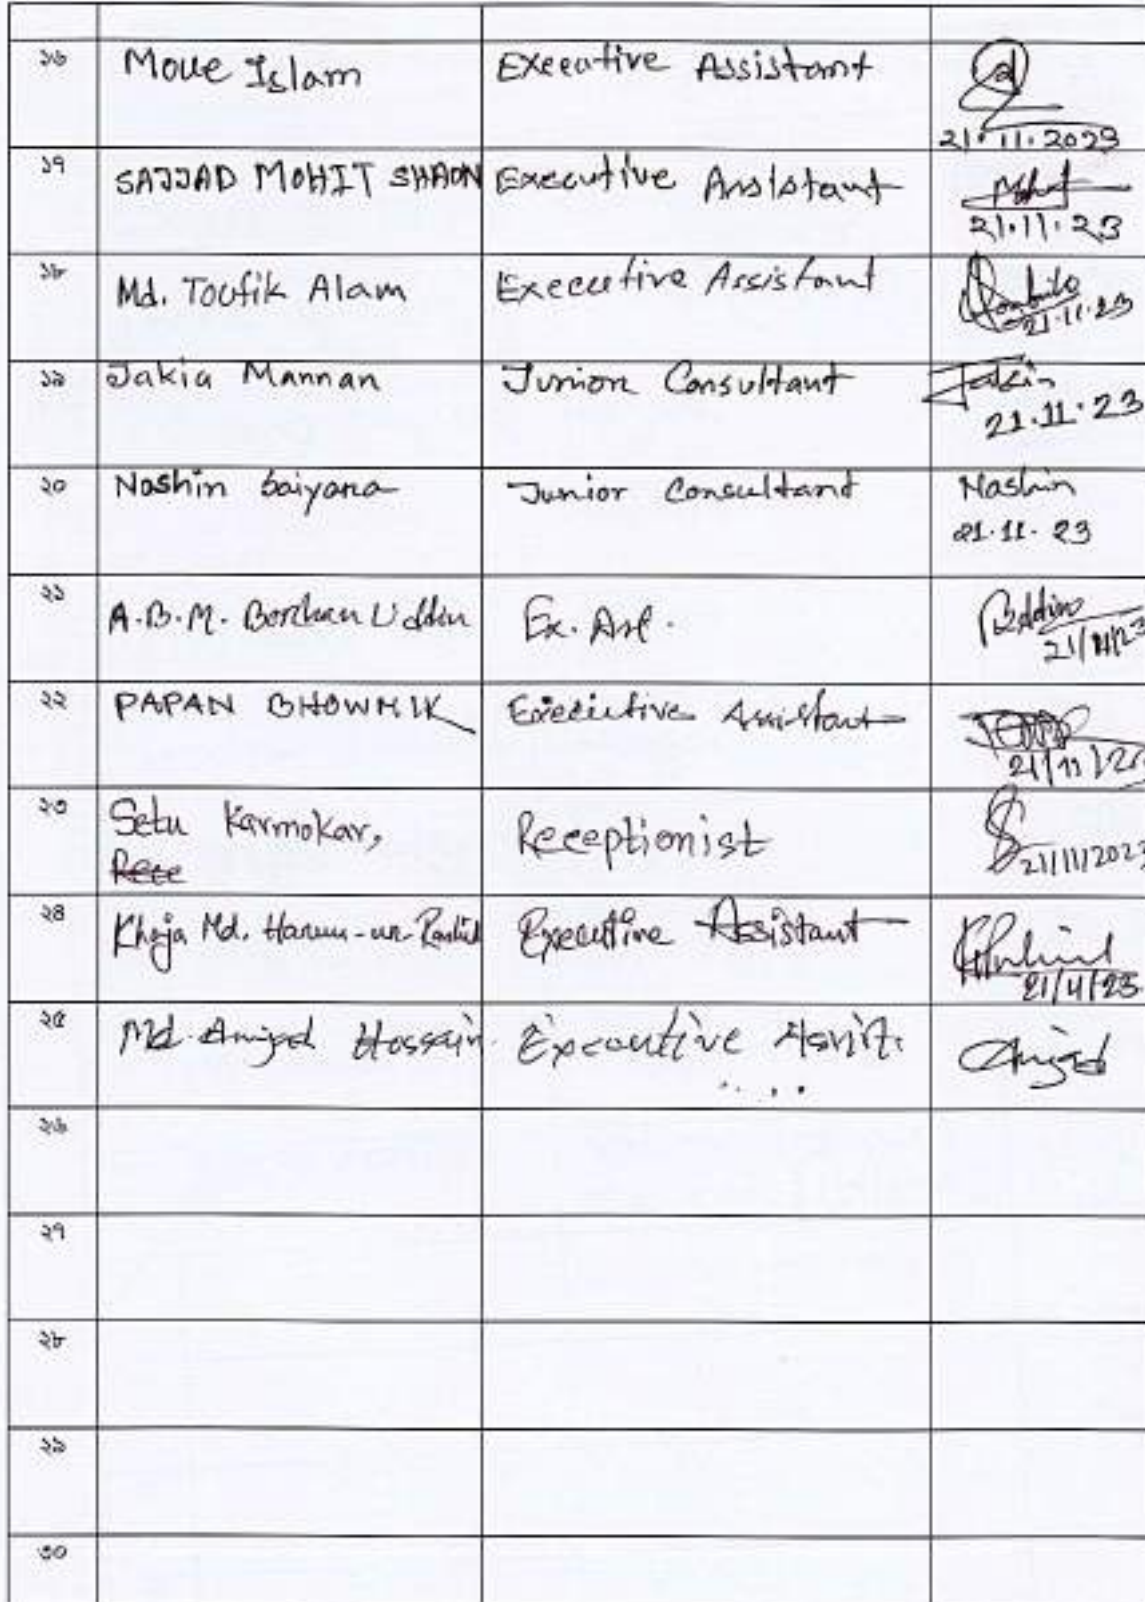 ১৬ Moue Islam Executive Assistant
21.11.2023
১৭ SAJJAD MOHIT SHAON Executive Assistant
21.11.23
১৮ Md. Toufik Alam Executive Assistant
21.11.23
১৯ Jakia Mannan Junior Consultant Jakia
21.11.23
২০ Noshin baiyana Junior Consultant Nashin
21.11.23
২১ A.B.M. Borhan Uddin Ex. Asst.
21/11/23
২২ PAPAN BHOWMIK Executive Assistant
21/11/
২৩ Setu Karmokar, Receptionist
Rece 21/11/2023
২৪ Khaja Md. Harun-ur-Rashid Executive Assistant
21/11/23
২৫ Md. Amjad Hossain Executive Assist. Amjad
২৬
২৭
২৮
২৯
৩০